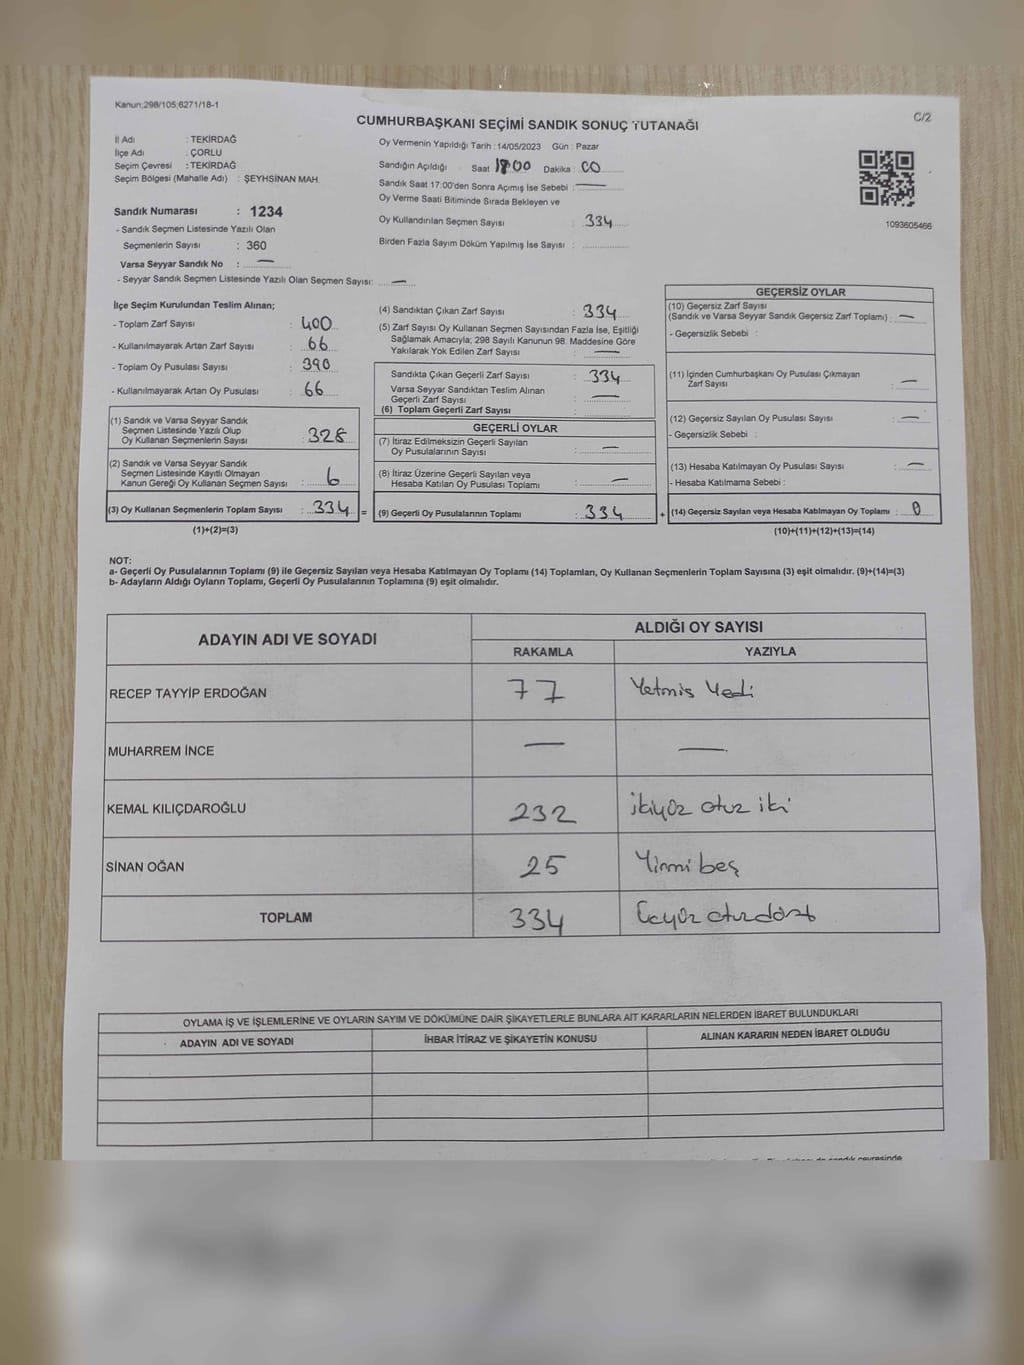 Kanun;298/105;6271/18-1
C/2
CUMHURBAŞKANI SEÇİMİ SANDIK SONUÇ TUTANAĞI
İl Adı : TEKİRDAĞ
İlçe Adı : ÇORLU
Seçim Çevresi : TEKİRDAĞ
Seçim Bölgesi (Mahalle Adı) : ŞEYHSİNAN MAH.
Sandık Numarası : 1234
- Sandık Seçmen Listesinde Yazılı Olan
Seçmenlerin Sayısı : 360
Varsa Seyyar Sandık No : —
- Seyyar Sandık Seçmen Listesinde Yazılı Olan Seçmen Sayısı: —
Oy Vermenin Yapıldığı Tarih : 14/05/2023 Gün : Pazar
Sandığın Açıldığı Saat Dakika : 00
Sandık Saat 17:00'den Sonra Açımış İse Sebebi : —
Oy Verme Saati Bitiminde Sırada Bekleyen ve
Oy Kullandırılan Seçmen Sayısı : 334
Birden Fazla Sayım Döküm Yapılmış İse Sayısı :
1093605466
İlçe Seçim Kurulundan Teslim Alınan;
- Toplam Zarf Sayısı : 400
- Kullanılmayarak Artan Zarf Sayısı : 66
- Toplam Oy Pusulası Sayısı : 390
- Kullanılmayarak Artan Oy Pusulası : 66
(1) Sandık ve Varsa Seyyar Sandık
Seçmen Listesinde Yazılı Olup
Oy Kullanan Seçmenlerin Sayısı : 328
(2) Sandık ve Varsa Seyyar Sandık
Seçmen Listesinde Kayıtlı Olmayan
Kanun Gereği Oy Kullanan Seçmen Sayısı : 6
(3) Oy Kullanan Seçmenlerin Toplam Sayısı : 334 =
(1)+(2)=(3)
(4) Sandıktan Çıkan Zarf Sayısı : 334
(5) Zarf Sayısı Oy Kullanan Seçmen Sayısından Fazla İse, Eşitliği
Sağlamak Amacıyla; 298 Sayılı Kanunun 98. Maddesine Göre
Yakılarak Yok Edilen Zarf Sayısı : —
Sandıkta Çıkan Geçerli Zarf Sayısı : 334
Varsa Seyyar Sandıktan Teslim Alınan
Geçerli Zarf Sayısı : —
(6) Toplam Geçerli Zarf Sayısı :
GEÇERLİ OYLAR
(7) İtiraz Edilmeksizin Geçerli Sayılan
Oy Pusulalarının Sayısı : —
(8) İtiraz Üzerine Geçerli Sayılan veya
Hesaba Katılan Oy Pusulası Toplamı : —
(9) Geçerli Oy Pusulalarının Toplamı : 334 +
GEÇERSİZ OYLAR
(10) Geçersiz Zarf Sayısı
(Sandık ve Varsa Seyyar Sandık Geçersiz Zarf Toplamı) : —
- Geçersizlik Sebebi :
(11) İçinden Cumhurbaşkanı Oy Pusulası Çıkmayan
Zarf Sayısı : —
(12) Geçersiz Sayılan Oy Pusulası Sayısı : —
- Geçersizlik Sebebi :
(13) Hesaba Katılmayan Oy Pusulası Sayısı : —
- Hesaba Katılmama Sebebi :
(14) Geçersiz Sayılan veya Hesaba Katılmayan Oy Toplamı : 0
(10)+(11)+(12)+(13)=(14)
NOT:
a- Geçerli Oy Pusulalarının Toplamı (9) ile Geçersiz Sayılan veya Hesaba Katılmayan Oy Toplamı (14) Toplamları, Oy Kullanan Seçmenlerin Toplam Sayısına (3) eşit olmalıdır. (9)+(14)=(3)
b- Adayların Aldığı Oyların Toplamı, Geçerli Oy Pusulalarının Toplamına (9) eşit olmalıdır.
ADAYIN ADI VE SOYADI
ALDIĞI OY SAYISI
RAKAMLA YAZIYLA
RECEP TAYYİP ERDOĞAN 77 Yetmis Yedi
MUHARREM İNCE — —
KEMAL KILIÇDAROĞLU 232 ikiyüz otuz iki
SİNAN OĞAN 25 Yirmi beş
TOPLAM 334 Üçyüz otuzdört
OYLAMA İŞ VE İŞLEMLERİNE VE OYLARIN SAYIM VE DÖKÜMÜNE DAİR ŞİKAYETLERLE BUNLARA AİT KARARLARIN NELERDEN İBARET BULUNDUKLARI
ADAYIN ADI VE SOYADI İHBAR İTİRAZ VE ŞİKAYETİN KONUSU ALINAN KARARIN NEDEN İBARET OLDUĞU